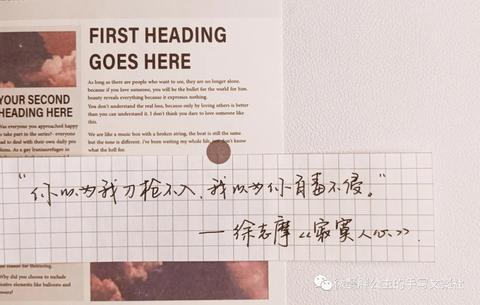 FIRST HEADING
GOES HERE
As long as there are people who want to see, they are no longer alone.
because if you love someone, you will be the bullet for the world for him.
beauty reveals everything because it expresses nothing.
You don't understand the real loss, because only by loving others is better
than you can understand it. I don't think you dare to love someone like
this.
We are like a music box with a broken string, the beat is still the same
but the tone is different. I've been waiting my whole life, just don't know
what the hell for.
YOUR SECOND
HEADING HERE
Was everyone you approached happy
to take part in the series? - everyone
had to deal with their own daily
“你以为我刀枪不入，我以为你百毒不侵。”
——徐志摩《寂寞人心》.
reason for
Why did you choose to include
elements like balloons and
的手写文